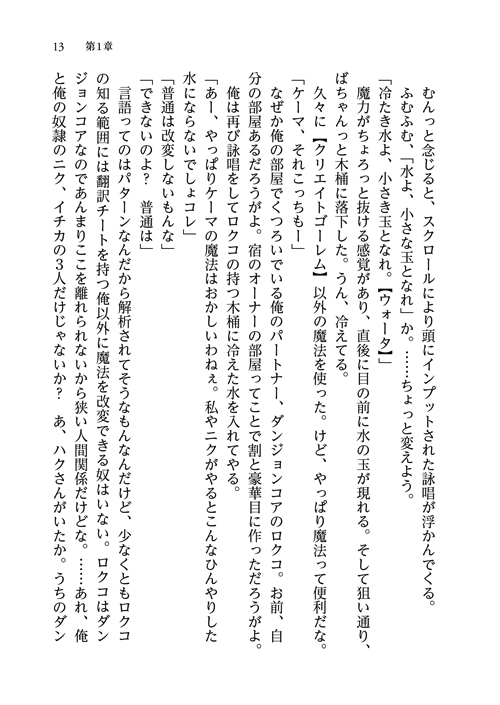 13　第1章
むんっと念じると、スクロールにより頭にインプットされた詠唱が浮かんでくる。
ふむふむ、「水よ、小さな玉となれ」か。……ちょっと変えよう。
「冷たき水よ、小さき玉となれ。【ウォータ】」
魔力がちょろっと抜ける感覚があり、直後に目の前に水の玉が現れる。そして狙い通り、
ばちゃんっと木桶に落下した。うん、冷えてる。
久々に【クリエイトゴーレム】以外の魔法を使った。けど、やっぱり魔法って便利だな。
「ケーマ、それこっちもー」
なぜか俺の部屋でくつろいでいる俺のパートナー、ダンジョンコアのロクコ。お前、自
分の部屋あるだろうがよ。宿のオーナーの部屋ってことで割と豪華目に作っただろうがよ。
俺は再び詠唱をしてロクコの持つ木桶に冷えた水を入れてやる。
「あー、やっぱりケーマの魔法はおかしいわねぇ。私やニクがやるとこんなひんやりした
水にならないでしょコレ」
「普通は改変しないもんな」
「できないのよ？　普通は」
言語ってのはパターンなんだから解析されてそうなもんなんだけど、少なくともロクコ
の知る範囲には翻訳チートを持つ俺以外に魔法を改変できる奴はいない。ロクコはダン
ジョンコアなのであんまりここを離れられないから狭い人間関係だけどな。……あれ、俺
と俺の奴隷のニク、イチカの３人だけじゃないか？　あ、ハクさんがいたか。うちのダン